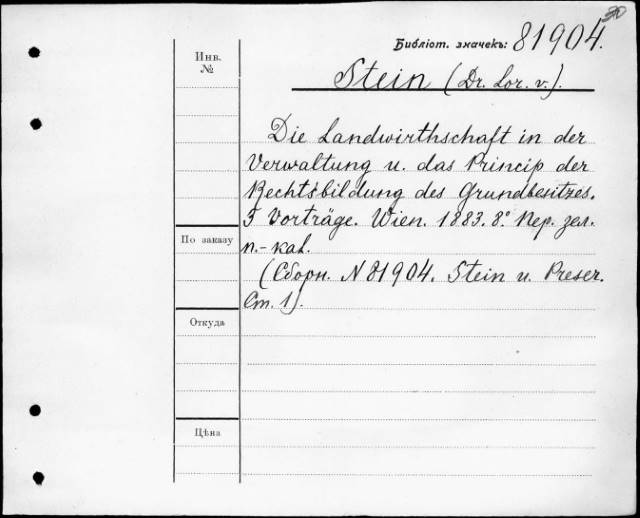 Библіот. значекъ: 81904.
Инв. №
Stein (Dr. Lor. v.).
Die Landwirthschaft in der
Verwaltung u. das Princip der
Rechtsbildung des Grundbesitzes.
3 Vorträge. Wien. 1883. 8°. Пер. зел.
п.-каl.
По заказу
(Сборн. N 81904. Stein u. Preser.
Ст. 1).
Откуда
Цѣна